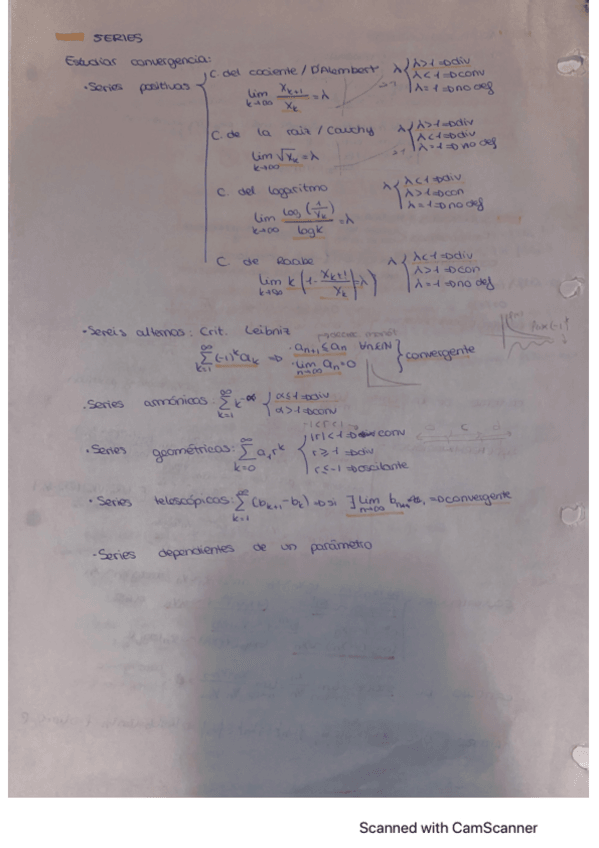 SERIES
Estudiar convergencia:
·Series positivas
C. del cociente / D'Alembert λ { λ>1 ⇒ div
lim k→∞ x_{k+1}/x_k = λ λ<1 ⇒ conv
λ=1 ⇒ no def
C. de la raiz / Cauchy λ { λ>1 ⇒ div
lim k→∞ √x_k = λ λ<1 ⇒ div
λ=1 ⇒ no def
C. del logaritmo λ { λ<1 ⇒ div
lim k→∞ log(1/x_k)/log k = λ λ>1 ⇒ con
λ=1 ⇒ no def
C. de Raabe λ { λ<1 ⇒ div
lim k→∞ k(1-x_{k+1}/x_k)=λ λ>1 ⇒ con
λ=1 ⇒ no def
·Sereis alternas: Crit. Leibniz
∑_{k=1}^∞ (-1)^k a_k ⇒ ·a_{n+1} ≤ a_n ∀n∈N
·lim n→∞ a_n = 0 } convergente
·Series armónicas: ∑_{k=1}^∞ k^{-α} { α≤1 ⇒ div
α>1 ⇒ conv
·Series geométricas: ∑_{k=0}^∞ a_1 r^k { |r|<1 ⇒ conv
r≥1 ⇒ div
r≤-1 ⇒ oscilante
·Series telescópicas: ∑_{k=1}^∞ (b_{k+1}-b_k) ⇒ si ∃ lim n→∞ ⇒ convergente
·Series dependientes de un parámetro
Scanned with CamScanner